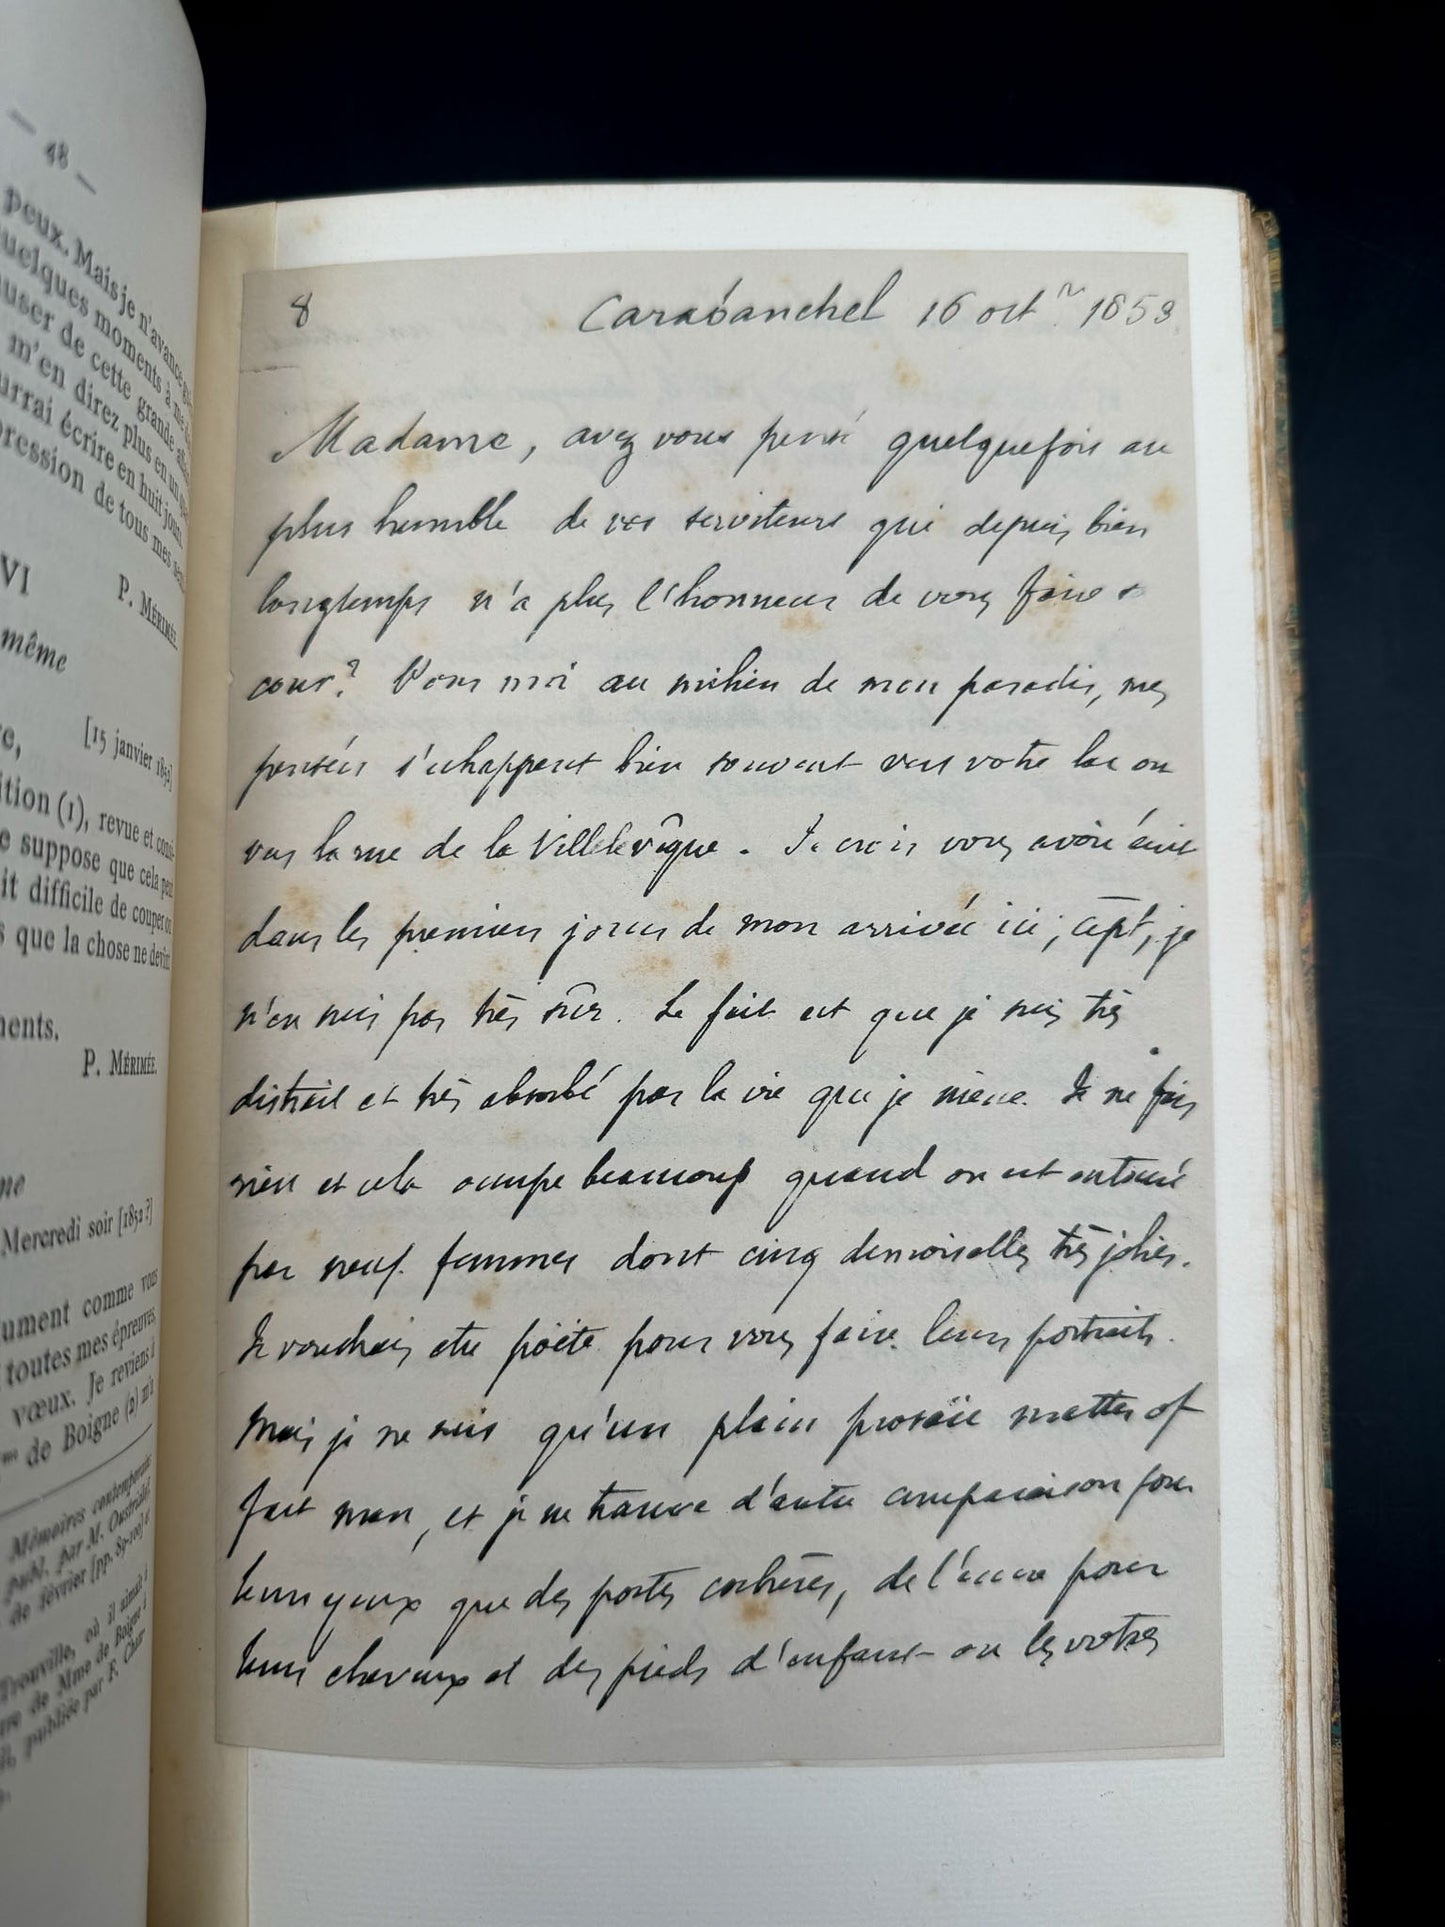 — 48 —
peux. Mais je n'avance
quelques moments à
user de cette grande
m'en direz plus en un
urrai écrire en huit jours.
pression de tous mes
P. MÉRIMÉE.
VI
même
[15 janvier 1852]
ition (1), revue et
e suppose que cela
it difficile de couper ou
s que la chose ne
ments.
P. MÉRIMÉE.
Mercredi soir [1852 ?]
ument comme vous
toutes mes épreuves,
vœux. Je reviens à
de Boigne (2) m'a
Mémoires
publ. par M.
de février [pp. 89-100]
Trouville, où il
de Mme de Boigne
publiée par F.
8
Carabanchel 16 oct.re 1853
Madame, avez vous pensé quelquefois au
plus humble de vos serviteurs qui depuis bien
longtemps n'a plus l'honneur de vous faire
cour? Pour moi au milieu de mon paradis, mes
pensées s'échappent bien souvent vers votre lac ou
vers la rue de la Villelevêque. Je crois vous avoir écrit
dans les premiers jours de mon arrivée ici, cept, je
n'en suis pas très sûr. Le fait est que je suis très
distrait et très absorbé par la vie que je mène. Je ne fais
rien et cela occupe beaucoup quand on est entouré
par neuf femmes dont cinq demoiselles très jolies.
Je voudrais etre poëte pour vous faire leurs portraits.
Mais je ne suis qu'un plain prosaïc matter of
fact man, et je ne trouve d'autre comparaison pour
leurs yeux que des portes cochères, de l'encre pour
leurs cheveux et des pieds d'enfant ou les votres